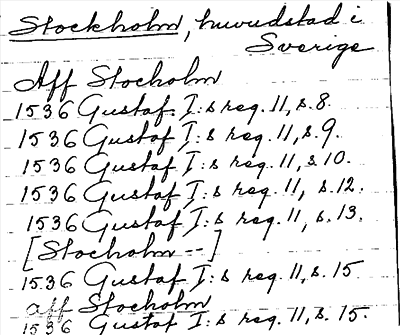 Stockholm, huvudstad i
Sverige
Aff Stocholm
1536 Gustaf I:s reg. 11, s. 8.
1536 Gustaf I:s reg. 11, s. 9.
1536 Gustaf I:s reg. 11, s. 10.
1536 Gustaf I:s reg. 11, s. 12.
1536 Gustaf I:s reg. 11, s. 13.
[Stocholm --]
1536 Gustaf I:s reg. 11, s. 15.
aff Stocholm
1536 Gustaf I:s reg. 11, s. 15.